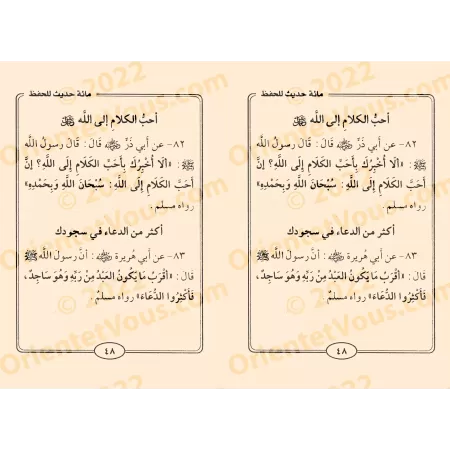 مائة حديث للحفظ
أحبُّ الكلامِ إلى اللَّه ﷻ
٨٢- عن أبي ذَرٍّ رضي الله عنه قال: قَالَ رسولُ اللَّه
ﷺ: «أَلَا أُخْبِرُكَ بِأَحَبِّ الكَلَامِ إِلَى اللَّهِ؟ إِنَّ
أَحَبَّ الكَلَامِ إِلَى اللَّهِ: سُبْحَانَ اللَّهِ وَبِحَمْدِهِ»
رواه مسلم.
أكثر من الدعاء في سجودك
٨٣- عن أبي هريرة رضي الله عنه: أنَّ رسولَ اللَّه ﷺ
قال: «أَقْرَبُ مَا يَكُونُ العَبْدُ مِنْ رَبِّهِ وَهُوَ سَاجِدٌ،
فَأَكْثِرُوا الدُّعَاءَ» رواه مسلمٌ.
٤٨
مائة حديث للحفظ
أحبُّ الكلامِ إلى اللَّه ﷻ
٨٢- عن أبي ذَرٍّ رضي الله عنه قال: قَالَ رسولُ اللَّه
ﷺ: «أَلَا أُخْبِرُكَ بِأَحَبِّ الكَلَامِ إِلَى اللَّهِ؟ إِنَّ
أَحَبَّ الكَلَامِ إِلَى اللَّهِ: سُبْحَانَ اللَّهِ وَبِحَمْدِهِ»
رواه مسلم.
أكثر من الدعاء في سجودك
٨٣- عن أبي هريرة رضي الله عنه: أنَّ رسولَ اللَّه ﷺ
قال: «أَقْرَبُ مَا يَكُونُ العَبْدُ مِنْ رَبِّهِ وَهُوَ سَاجِدٌ،
فَأَكْثِرُوا الدُّعَاءَ» رواه مسلمٌ.
٤٨
© 2022
OrientetVous.com
© 2022
OrientetVous.com
© 2022
OrientetVous.com